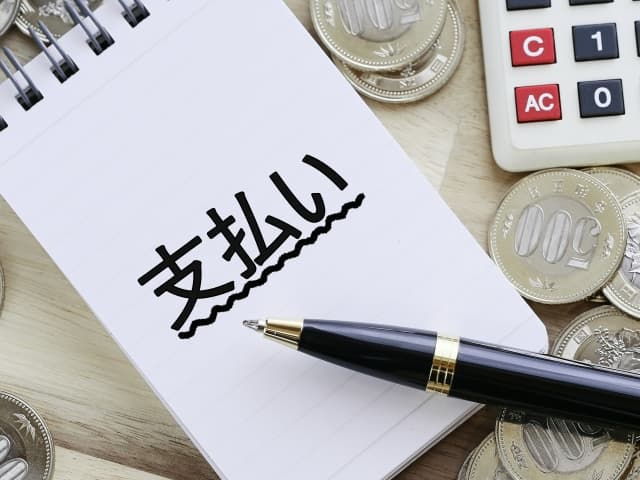 支払い
C
1
AC
0
500
500